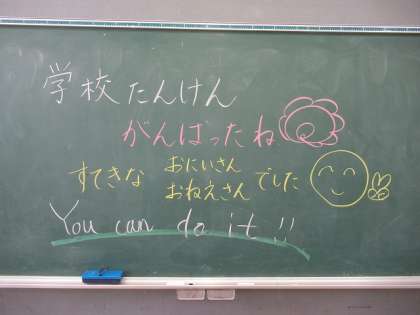 学校たんけん
がんばったね
すてきな おにいさん おねえさん でした
You can do it!!